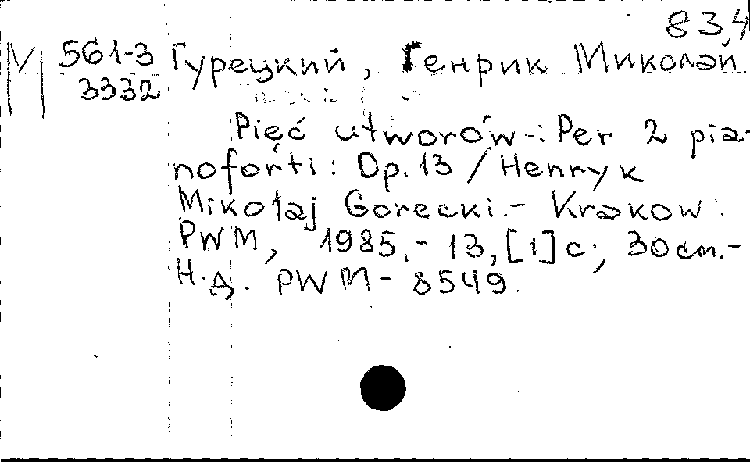 834
М 561-3 Гурецкий, Генрик Миколай.
3332
Pięć utworów-: Per 2 pia-
noforti: Op. 13 / Henryk
Mikołaj Gorecki. - Krakow:
PWM, 1985. - 13, [1] с.; 30 см. -
Н. д. PWM - 8549.